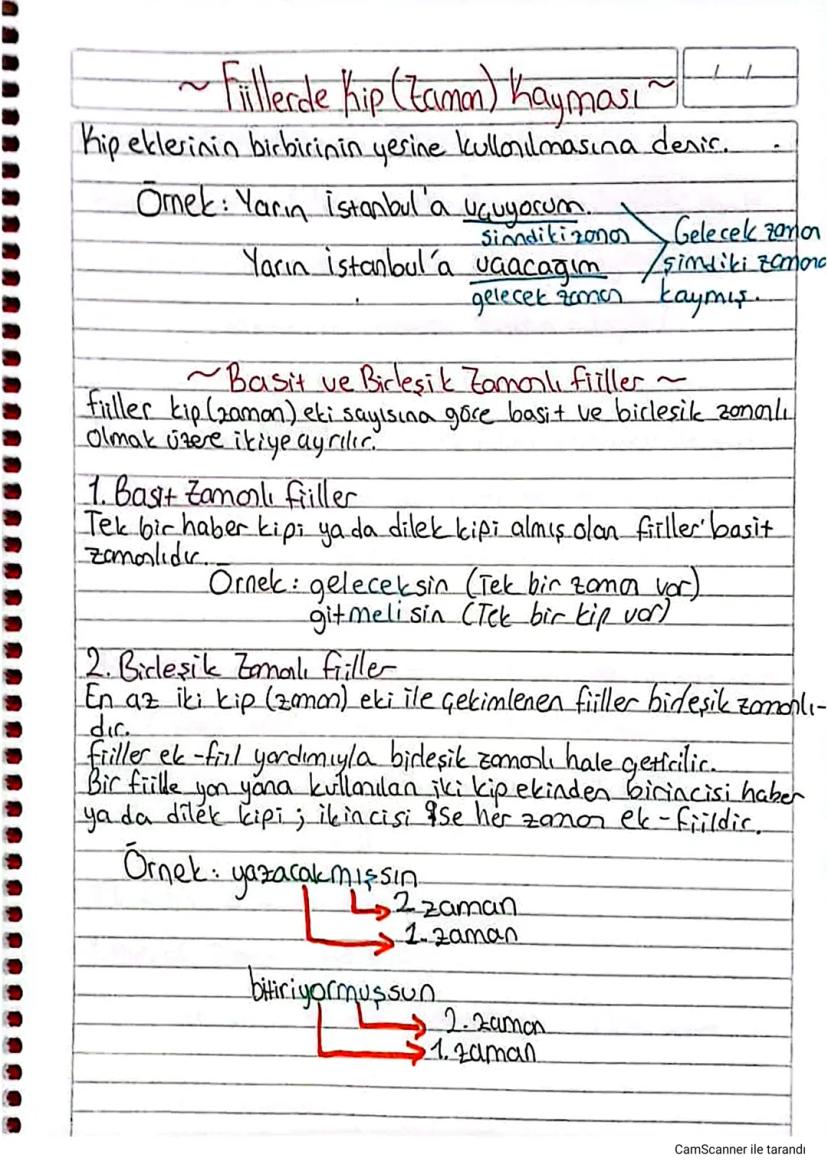 ~ Fiillerde Kip (Zaman) Kayması ~
Kip eklerinin birbirinin yerine kullanılmasına denir.
Örnek: Yarın İstanbul'a uçuyorum.
şimdiki zaman
Yarın İstanbul'a uçacağım
gelecek zaman
Gelecek zaman
şimdiki zamana
kaymış.
~ Basit ve Birleşik Zamanlı Fiiller ~
Fiiller kip (zaman) eki sayısına göre basit ve birleşik zamanlı
olmak üzere ikiye ayrılır.
1. Basit Zamanlı Fiiller
Tek bir haber kipi ya da dilek kipi almış olan fiiller basit
zamanlıdır.
Örnek: geleceksin (Tek bir zaman var)
gitmelisin (Tek bir kip var)
2. Birleşik Zamanlı Fiiller
En az iki kip (zaman) eki ile çekimlenen fiiller birleşik zamanlı-
dır.
Fiiller ek-fiil yardımıyla birleşik zamanlı hale getirilir.
Bir fiille yan yana kullanılan iki kip ekinden birincisi haber
ya da dilek kipi; ikincisi ise her zaman ek-fiildir.
Örnek: yazacakmışsın
2. zaman
1. zaman
bitiriyormuşsun
2. zaman
1. zaman
CamScanner ile tarandı